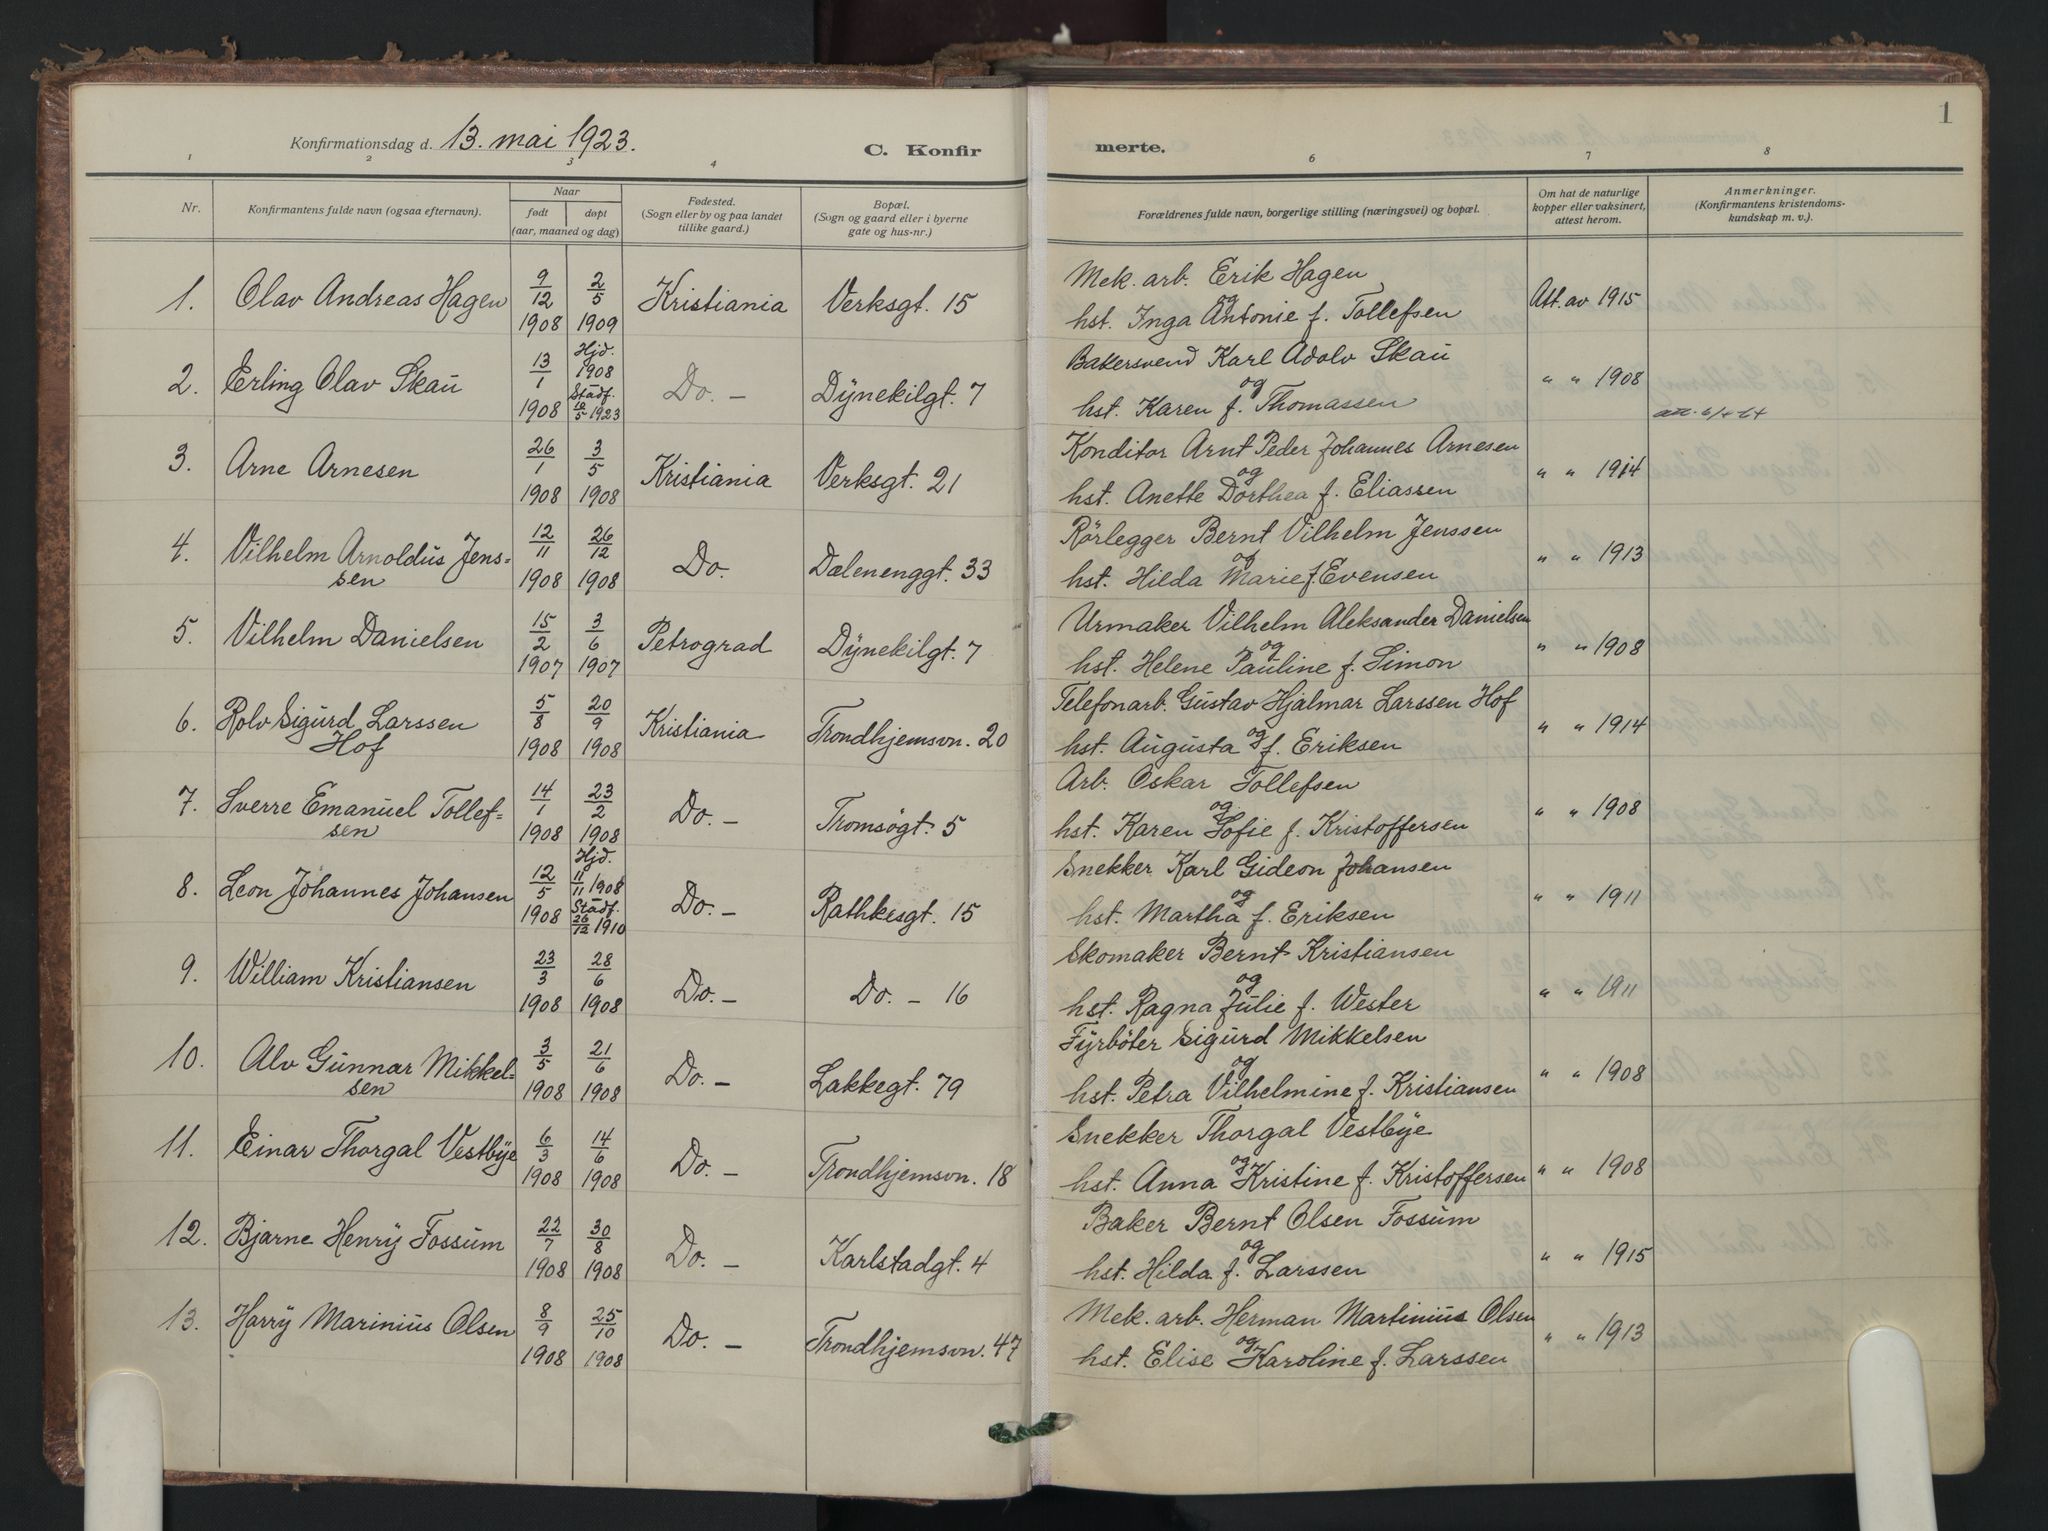 1
Konfirmationsdag d. 13. mai 1923.
C. Konfirmerte.
1 2 3 4 6 7 8
Nr.
Konfirmantens fulde navn (ogsaa efternavn).
Naar
født døpt
(aar, maaned og dag)
Fødested.
(Sogn eller by og paa landet
tillike gaard.)
Bopæl.
(Sogn og gaard eller i byerne
gate og hus-nr.)
Forældrenes fulde navn, borgerlige stilling (næringsvei) og bopæl.
Om hat de naturlige
kopper eller vaksinert,
attest herom.
Anmerkninger.
(Konfirmantens kristendoms-
kundskap m. v.).
1. Olav Andreas Hagen 9/12 1908 2/5 1909 Kristiania Verksgt. 15 Mek. arb. Erik Hagen
og
hst. Inga Antonie f. Tollefsen Att. av 1915
2. Erling Olav Skau 13/1 1908 Hjd. 1908 Stadf. 10/5 1923 Do. – Dynekilgt. 7 Bakersvend Karl Adolv Skau
og
hst. Karen f. Thomassen " " 1908
3. Arne Arnesen 26/1 1908 3/5 1908 Kristiania Verksgt. 21 Konditor Arnt Peder Johannes Arnesen
og
hst. Anette Dorthea f. Eliassen " " 1914
4. Vilhelm Arnoldus Jens-
sen 12/11 1908 26/12 1908 Do. Dælenenggt. 33 Rörlegger Bernt Vilhelm Jenssen
og
hst. Hilda Marie f. Evensen " " 1913
5. Vilhelm Danielsen 15/2 1907 3/6 1907 Petrograd Dynekilgt. 7 Urmaker Vilhelm Aleksander Danielsen
og
hst. Helene Pauline f. Simon " " 1908
6. Rolv Sigurd Larssen
Hof 5/8 1908 20/9 1908 Kristiania Trondhjemsvn. 20 Telefonarb. Gustav Hjalmar Larssen Hof
og
hst. Augusta f. Eriksen " " 1914
7. Sverre Emanuel Tollef-
sen 14/1 1908 23/2 1908 Do. – Tromsögt. 5 Arb. Oskar Tollefsen
og
hst. Karen Sofie f. Kristoffersen " " 1908
8. Leon Johannes Johansen 12/5 1908 Hjd. 11/11 1908 Stadf. 26/12 1910 Do. – Rathkesgt. 15 Snekker Karl Gideon Johansen
og
hst. Martha f. Eriksen " " 1911
9. William Kristiansen 23/3 1908 28/6 1908 Do. – Do. – 16 Skomaker Bernt Kristiansen
og
hst. Ragna Julie f. Wester " " 1911
10. Alv Gunnar Mikkel-
sen 3/5 1908 21/6 1908 Do. – Lakkegt. 79 Fyrböter Sigurd Mikkelsen
og
hst. Petra Vilhelmine f. Kristiansen " " 1908
11. Einar Thorgal Vestbye 6/3 1908 14/6 1908 Do. – Trondhjemsvn. 18 Snekker Thorgal Vestbye
og
hst. Anna Kristine f. Kristoffersen " " 1908
12. Bjarne Henry Fossum 22/7 1908 30/8 1908 Do. – Karlstadgt. 4 Baker Bernt Olsen Fossum
og
hst. Hilda f. Larssen " " 1915
13. Harry Marinius Olsen 8/9 1908 25/10 1908 Do. – Trondhjemsvn. 47 Mek. arb. Herman Martinius Olsen
og
hst. Elise Karoline f. Larssen " " 1913